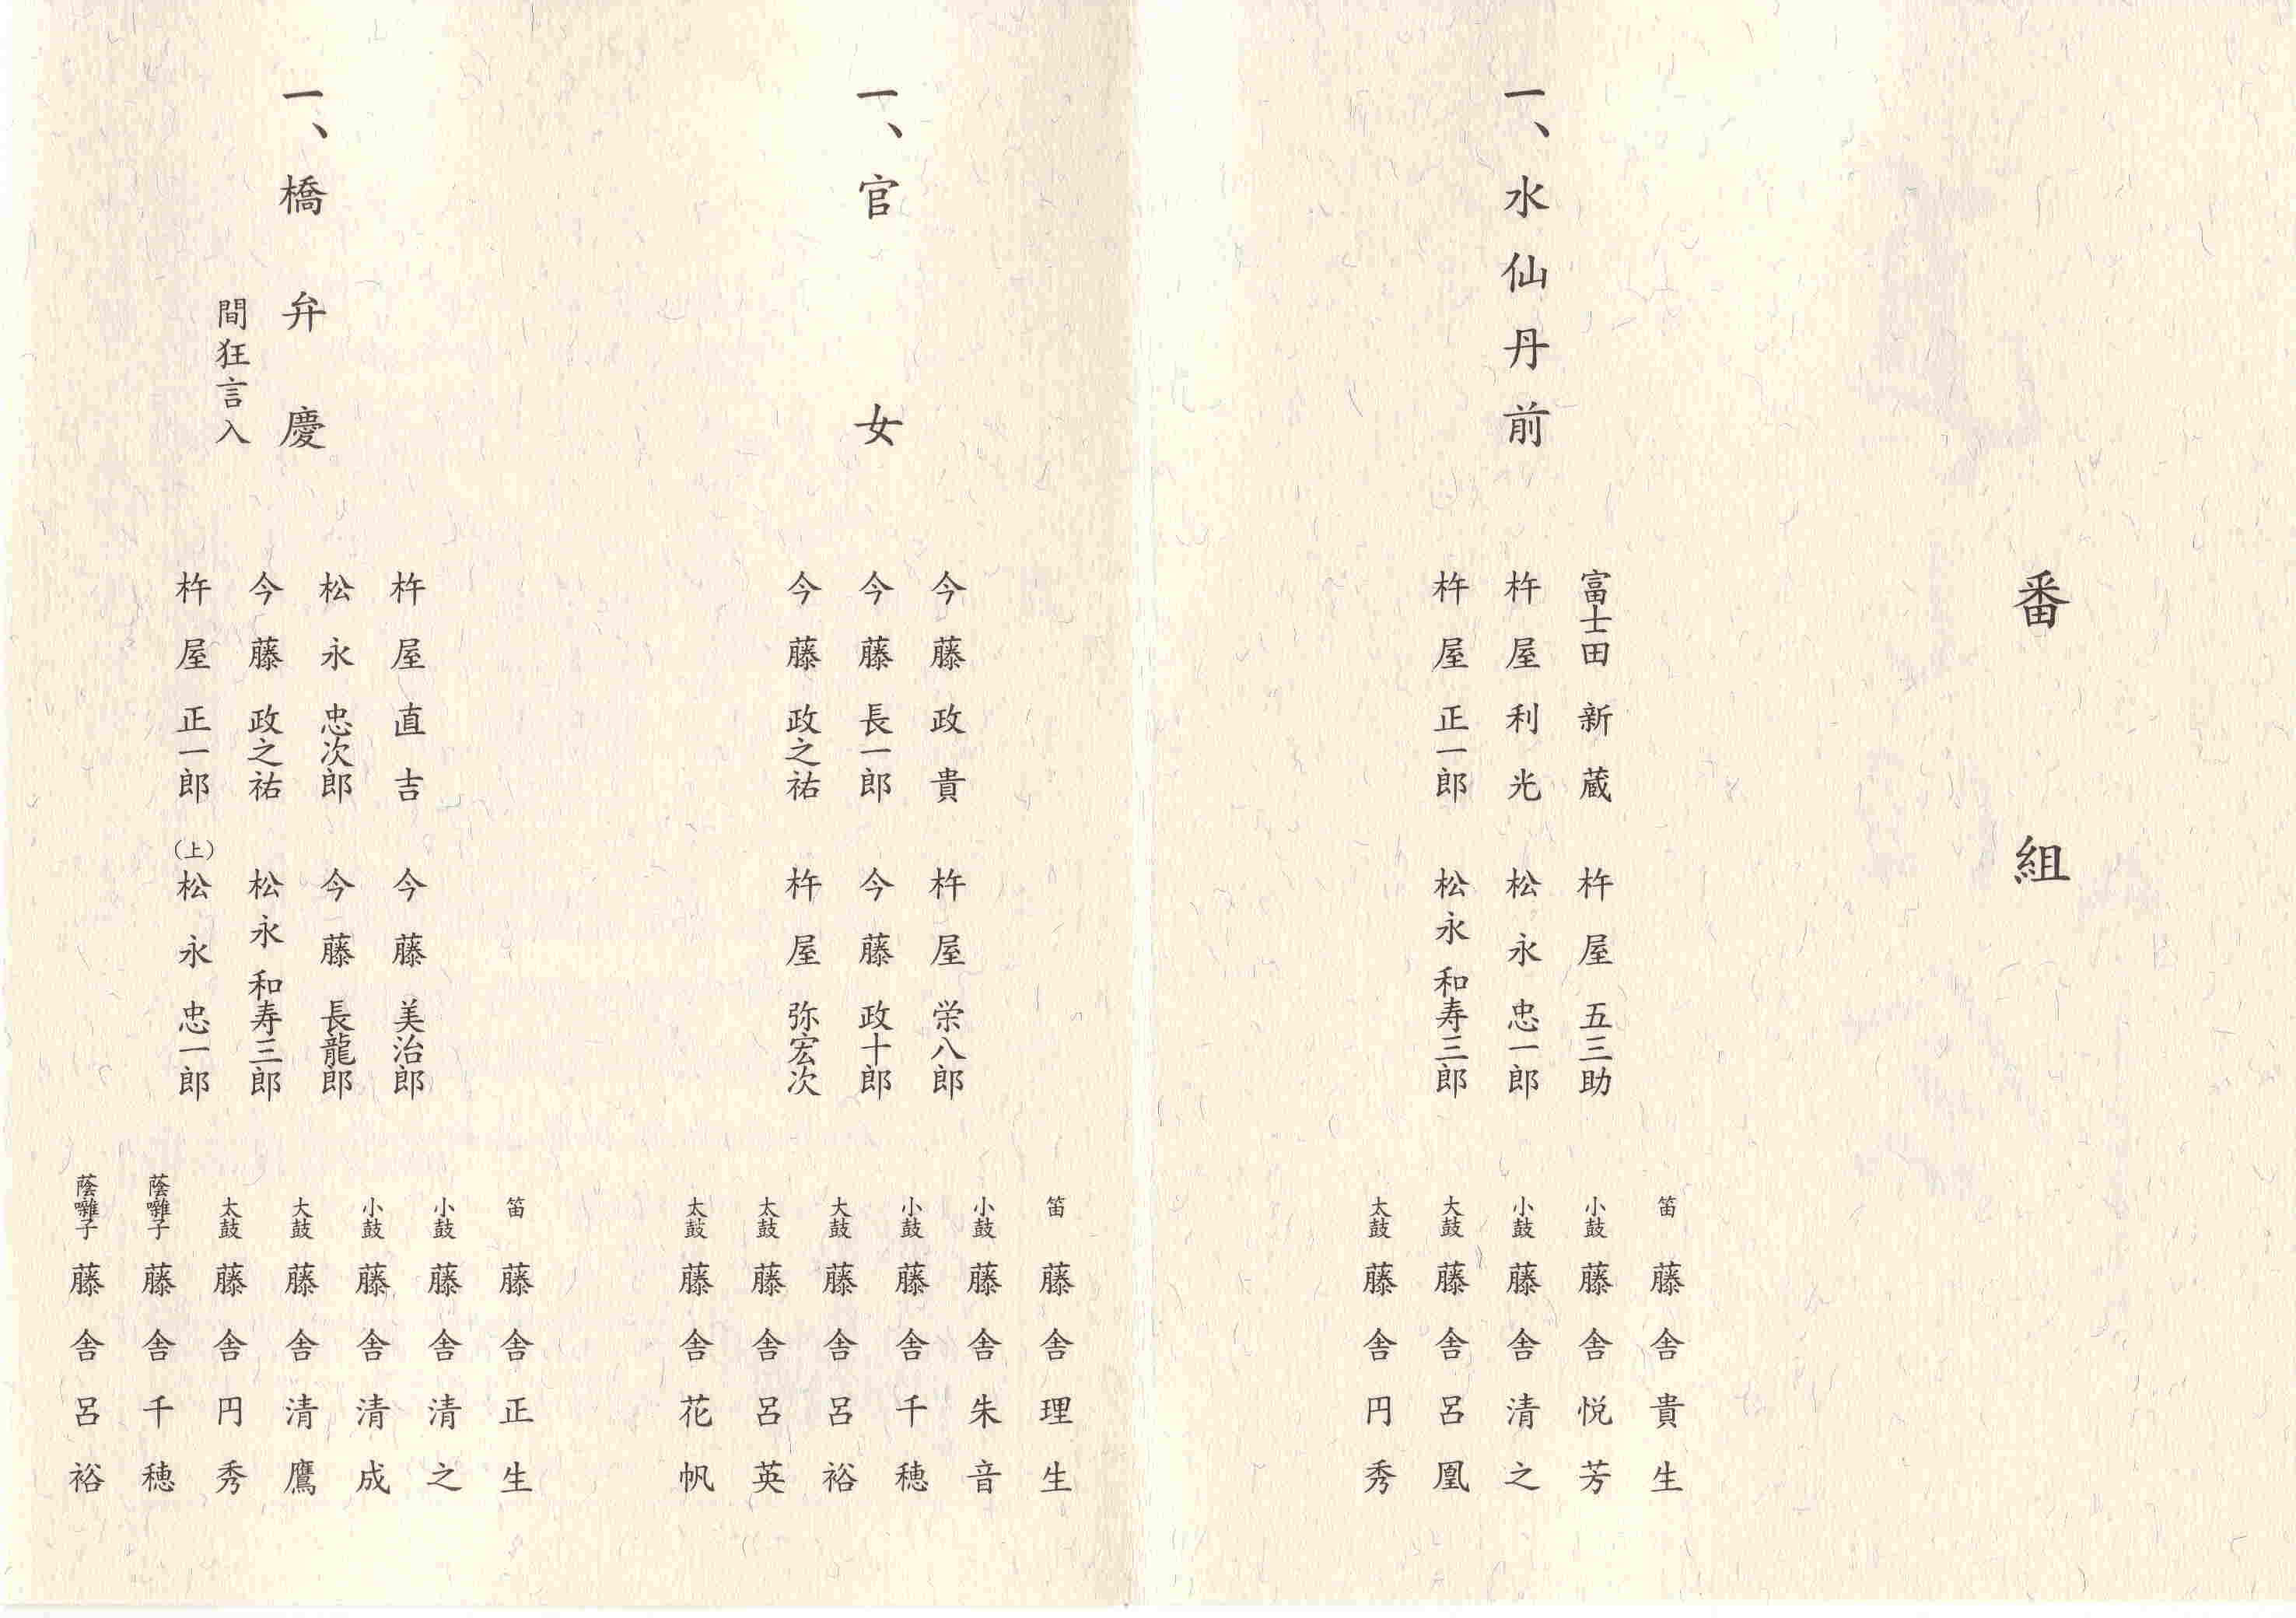 番組
一、水仙丹前
富士田新蔵
杵屋利光
杵屋正一郎
杵屋五三助
松永忠一郎
松永和寿三郎
笛 藤舎貴生
小鼓 藤舎悦芳
小鼓 藤舎清之
大鼓 藤舎呂凰
太鼓 藤舎円秀
一、官女
今藤政貴
今藤長一郎
今藤政之祐
杵屋栄八郎
今藤政十郎
杵屋弥宏次
笛 藤舎理生
小鼓 藤舎朱音
小鼓 藤舎千穂
大鼓 藤舎呂裕
太鼓 藤舎呂英
太鼓 藤舎花帆
一、橋弁慶
間狂言入
杵屋直吉
松永忠次郎
今藤政之祐
杵屋正一郎
今藤美治郎
今藤長龍郎
松永和寿三郎
（上）松永忠一郎
笛 藤舎正生
小鼓 藤舎清之
小鼓 藤舎清成
大鼓 藤舎清鷹
太鼓 藤舎円秀
蔭囃子 藤舎千穂
蔭囃子 藤舎呂裕